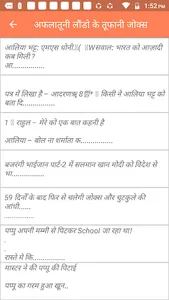 1:52
अफलातूनी लौंडो के तूफानी जोक्स
आलिया भट्ट: एमएस धोनी,
सवाल: भारत को आज़ादी
कब मिली ?
आ................
पत्र में लिखा है – आदरणीय
किसी ने आलिया भट्ट को
बता दि..............
1 राहुल – मेरे को एक बात कहनी है
आलिया – बोल ना शर्माता क...............
बजरंगी भाईजान पार्ट-2 में सलमान खान मोदी को विदेश से
भा................
59 दिनों के बाद फिर से चलेगी जोक्स और चुटकुले की
आंधी......
................
पप्पू अपनी मम्मी से पिटकर School जा रहा था!
.
.
रास्ते मे कि................
मास्टर ने की पप्पू की पिटाई
पप्पू का गरम हुआ खून,.